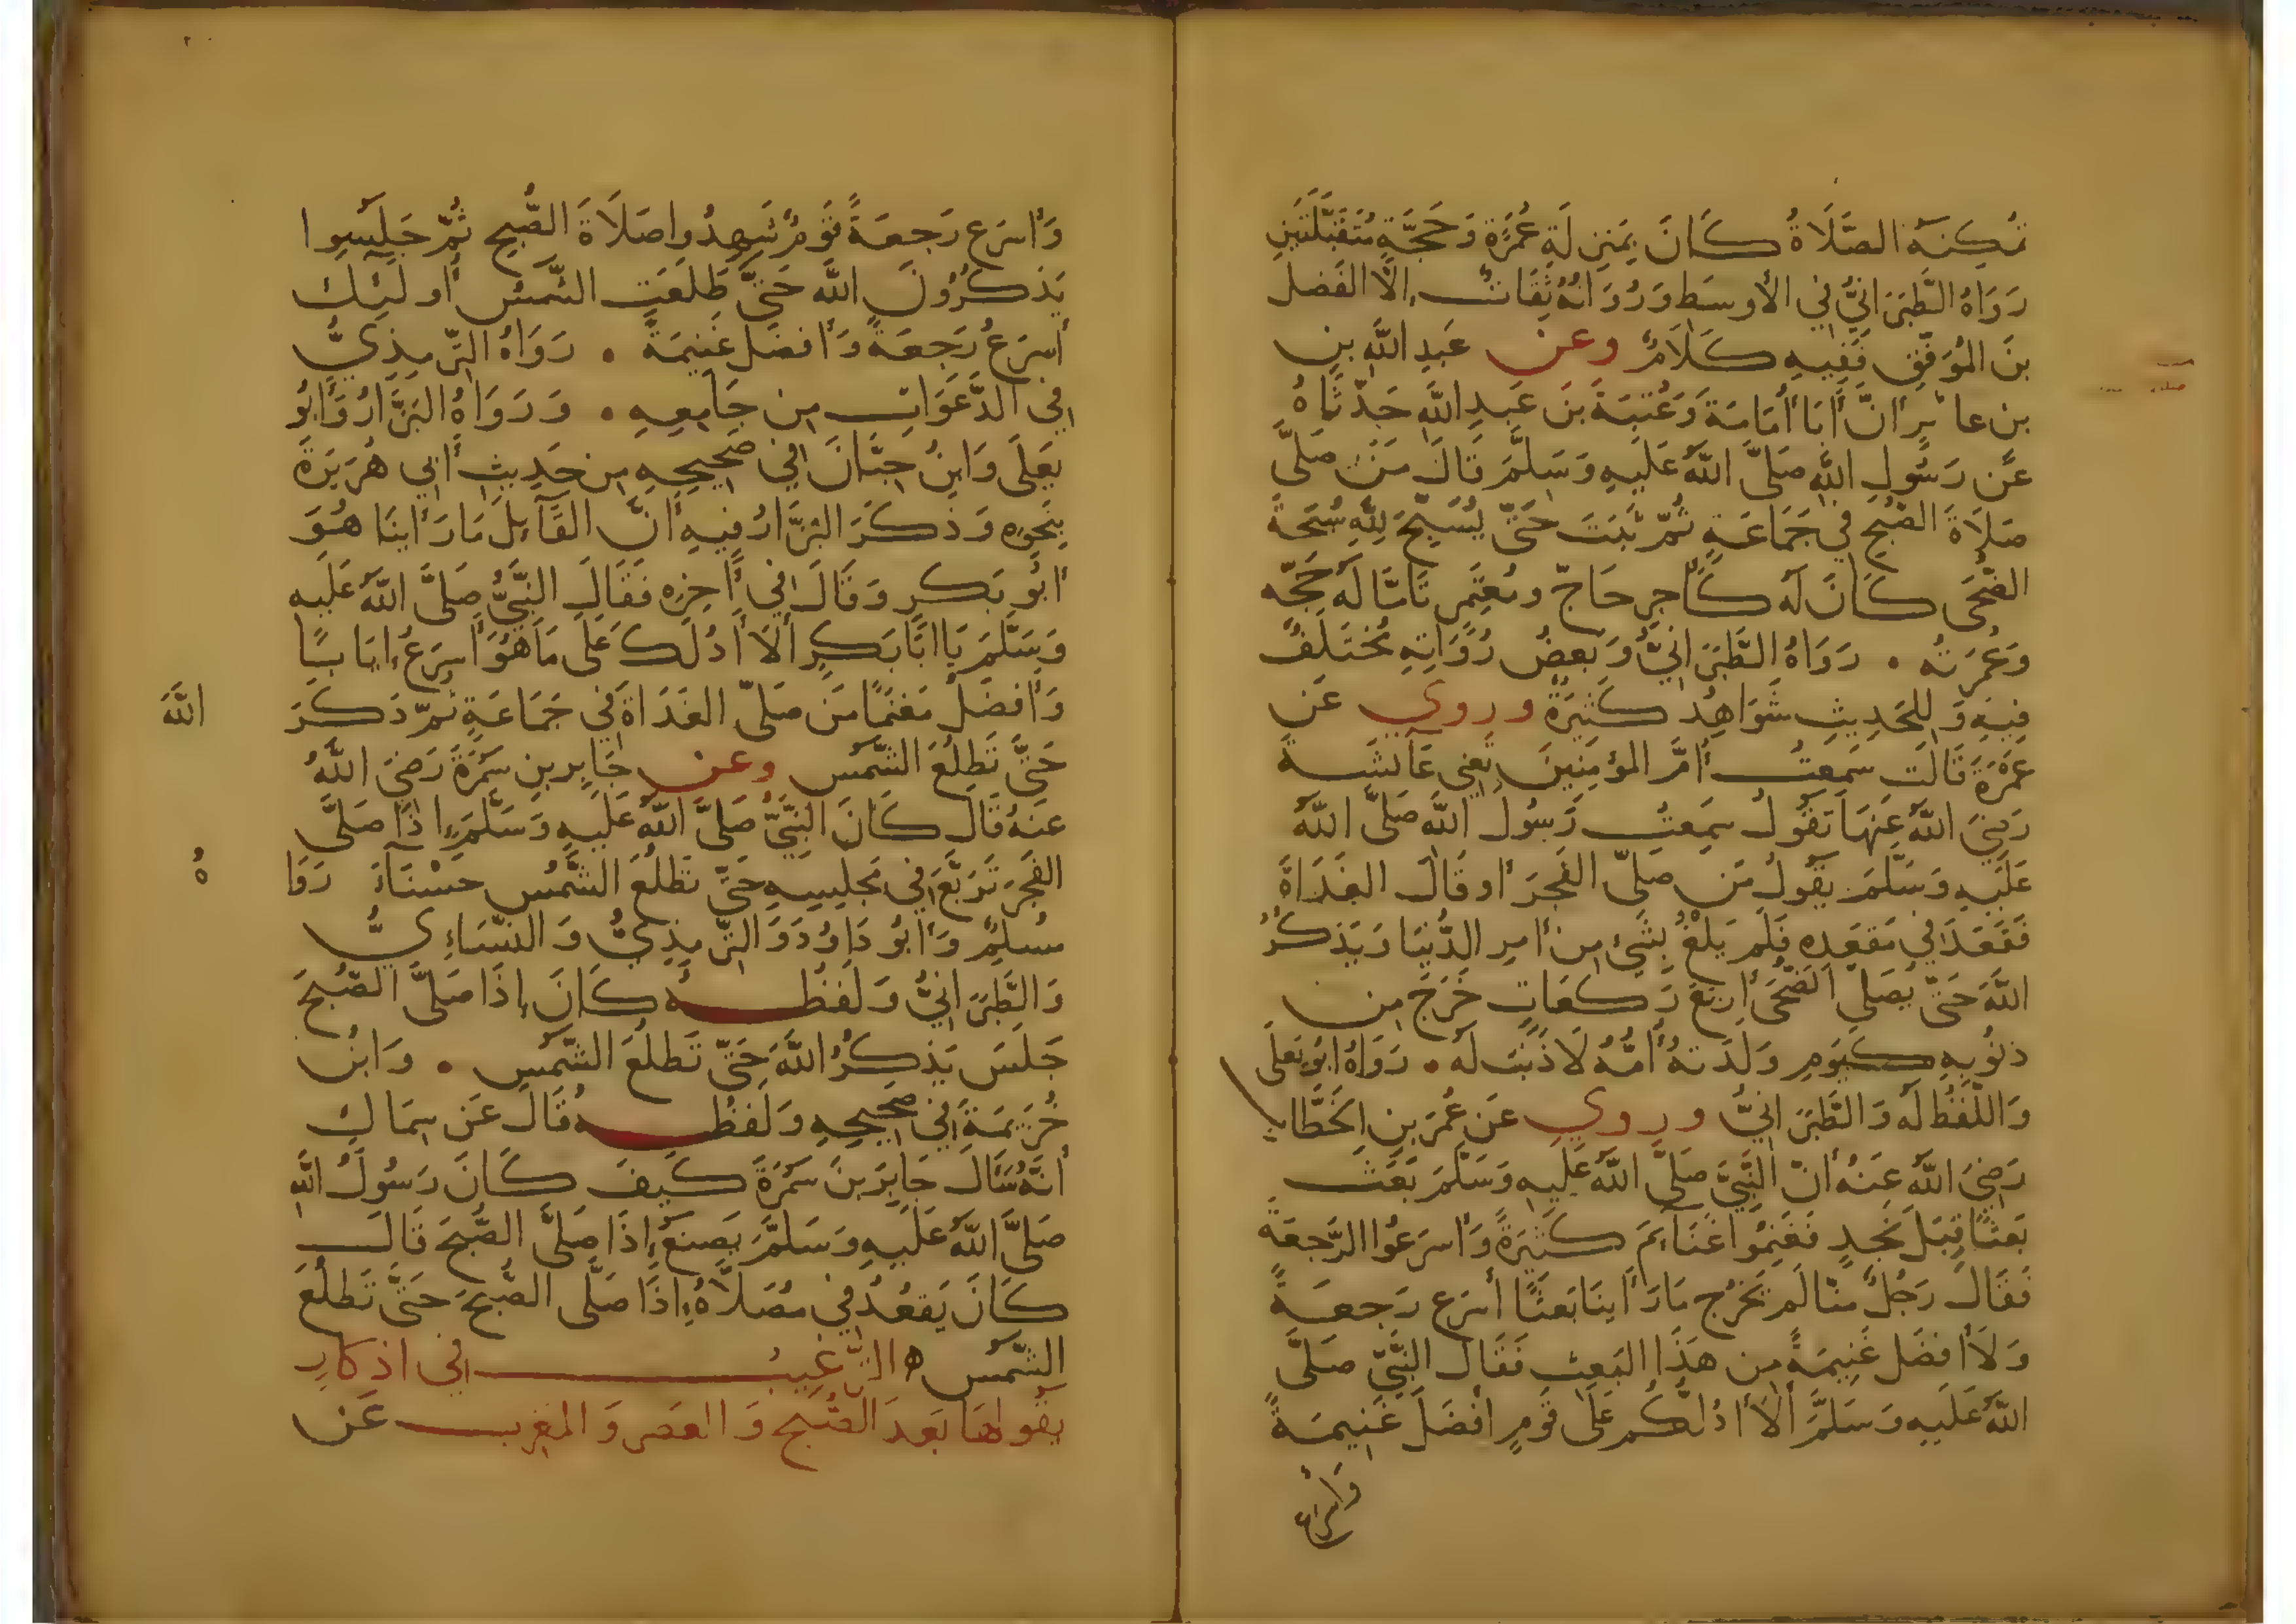 تُمكِنَهُ الصَّلَاةُ كَانَ بِمَنزِلَةِ عُمْرَةٍ وَحَجَّةٍ مُتَقَبَّلَتَينِ
رَوَاهُ الطَّبَرَانِيُّ فِي الأَوسَطِ وَرُوَاتُهُ ثِقَاتٌ إلَّا الفَضل
بنَ المُوَفَّقِ فَفِيهِ كَلَامٌ وعن عَبدِ اللَّهِ بنِ
بن عابرٍ أنَّ أبَا أُمَامَةَ وَعُتبَةَ بنَ عَبدِ اللَّهِ حَدَّثَاهُ
عَن رَسُولِ اللَّهِ صَلَّى اللَّهُ عَلَيهِ وَسَلَّمَ قَالَ مَن صَلَّى
صَلَاةَ الصُّبحِ فِي جَمَاعَةٍ ثُمَّ ثَبَتَ حَتَّى يُسَبِّحَ لِلَّهِ سُبحَةَ
الضُّحَى كَانَ لَهُ كَأَجرِ حَاجٍّ ومُعتَمِرٍ تَامًّا لَهُ حَجُّه
وَعُمرَتُه . رَوَاهُ الطَّبَرَانِيُّ وَبَعضُ رُوَاتِهِ مُختَلَفٌ
فِيهِ وَلِلحَدِيثِ شَوَاهِدُ كَثِيرَةٌ وروي عَن
عَمْرَةَ قَالَت سَمِعتُ أمَّ المُؤمِنِينَ تَعنِي عَائشَةَ
رَضِيَ اللَّهُ عَنهَا تَقُولُ سَمِعتُ رَسُولَ اللَّهِ صَلَّى اللَّهُ
عَلَيهِ وَسَلَّمَ يَقُولُ مَن صَلَّى الفَجرَ أو قَالَ الغَدَاةَ
فَقَعَدَ فِي مَقعَدِهِ فَلَم يَلْغُ بِشَيءٍ مِن أمرِ الدُّنيَا وَيَذكُرُ
اللَّهَ حَتَّى يُصَلِّيَ الضُّحَى أربَعَ رَكعَاتٍ خَرَجَ مِن
ذنُوبِهِ كَيَومِ وَلَدَتهُ أُمُّهُ لَا ذَنبَ لَه . رَوَاهُ أبُو يَعلَى
وَاللَّفظُ لَه وَالطَّبَرَانِيُّ وروي عَن عُمَرَ بنِ الخَطَّاب
رَضِيَ اللَّهُ عَنهُ أنَّ النَّبِيَّ صَلَّى اللَّهُ عَلَيهِ وَسَلَّمَ بَعَثَ
بَعثًا قِبَلَ نَجدٍ فَغَنِمُوا غَنَائمَ كَثِيرَةً وَأسرَعُوا الرَّجعَةَ
فَقَالَ رَجُلٌ مِنَّا لَم يَخرُج مَا رَأينَا بَعثًا أسرَع رَجعَةً
وَلَا أفضَل غَنِيمَةً مِن هَذَا البَعثِ فَقَالَ النَّبِيُّ صَلَّى
اللَّهُ عَلَيهِ وَسَلَّمَ ألَا أدُلُّكُم عَلَى قَومٍ أفضَلَ غَنِيمَةً
وَأسرَع
وَأسرَع رَجعَةً قَومٌ شَهِدُوا صَلَاةَ الصُّبحِ ثُمَّ جَلَسُوا
يَذكُرُونَ اللَّهَ حَتَّى طَلَعَتِ الشَّمسُ أولَئِكَ
أسرَعُ رَجعَةً وَأفضَل غَنِيمَةً . رَوَاهُ التِّرمِذِيُّ
فِي الدَّعَوَاتِ مِن جَامِعِهِ . وَرَوَاهُ البَزَّارُ وَأبُو
يَعلَى وَابنُ حِبَّانَ فِي صَحِيحِهِ مِن حَدِيثِ أبِي هُرَيرَةَ
بِنَحوِه وَذَكَرَ البَزَّارُ فِيهِ أنَّ القَآئِلَ مَا رَأينَا هُوَ
أبُو بَكرٍ وَقَالَ فِي آخِرِه فَقَالَ النَّبِيُّ صَلَّى اللَّهُ عَلَيهِ
وَسَلَّمَ يَا أبَا بَكرٍ ألَا أدُلُّكَ عَلَى مَا هُوَ أسرَعُ إيَابًا
وَأفضَلُ مَغنَمًا مَن صَلَّى الغَدَاةَ فِي جَمَاعَةٍ ثُمَّ ذَكَرَ
اللَّهَ
حَتَّى تَطلُعَ الشَّمسُ وعن جَابِرِ بنِ سَمُرَةَ رَضِيَ اللَّهُ
عَنهُ قَالَ كَانَ النَّبِيُّ صَلَّى اللَّهُ عَلَيهِ وَسَلَّمَ إذَا صَلَّى
الفَجرَ تَرَبَّعَ فِي مَجلِسِهِ حَتَّى تَطلُعَ الشَّمسُ حَسْنَاءَ رَوَا
هُ
مُسلِمٌ وَأبُو دَاوُدَ وَالتِّرمِذِيُّ وَالنَّسَاءِيُّ
وَالطَّبَرَانِيُّ وَلَفظُه كَانَ إذَا صَلَّى الصُّبحَ
جَلَسَ يَذكُرُ اللَّهَ حَتَّى تَطلُعَ الشَّمسُ . وَابنُ
خُزَيمَةَ فِي صَحِيحِهِ وَلَفظُهُ قَالَ عَن سِمَاكٍ
أنَّهُ سَألَ جَابِرَ بنَ سَمُرَةَ كَيفَ كَانَ رَسُولُ اللَّهِ
صَلَّى اللَّهُ عَلَيهِ وَسَلَّمَ يَصنَعُ إذَا صَلَّى الصُّبحَ قَالَ
كَانَ يَقعُدُ فِي مُصَلَّاهُ إذَا صَلَّى الصُّبحَ حَتَّى تَطلُعَ
الشَّمسُ ه التَّرغِيبُ فِي اذكارٍ
يقُولهَا بَعدَ الصُّبحِ وَالعَصرِ وَالمَغرِبِ عَن